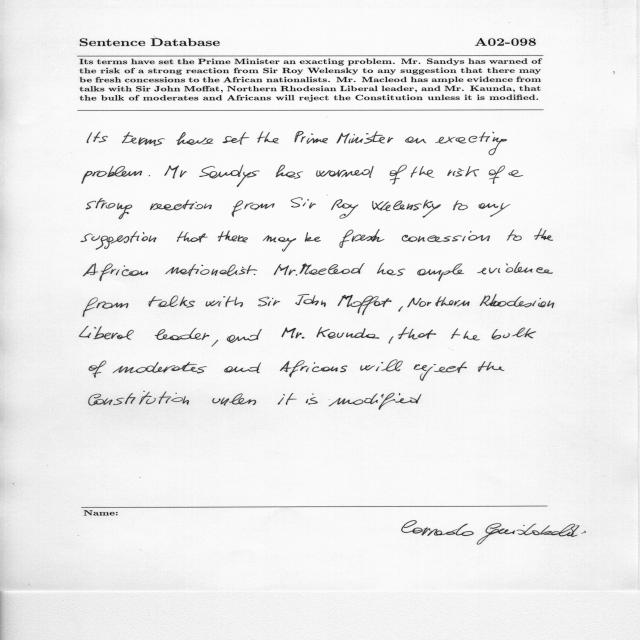 Sentence Database A02-098
Its terms have set the Prime Minister an exacting problem. Mr. Sandys has warned of
the risk of a strong reaction from Sir Roy Welensky to any suggestion that there may
be fresh concessions to the African nationalists. Mr. Macleod has ample evidence from
talks with Sir John Moffat, Northern Rhodesian Liberal leader, and Mr. Kaunda, that
the bulk of moderates and Africans will reject the Constitution unless it is modified.
Its terms have set the Prime Minister an exacting
problem. Mr Sandys has warned of the risk of a
strong reaction from Sir Roy Welensky to any
suggestion that there may be fresh concession to the
African nationalist. Mr. Macleod has ample evidence
from talks with Sir John Moffat, Northern Rhodesian
Liberal leader, and Mr. Kaunda, that the bulk
of moderates and Africans will reject the
Constitution unless it is modified
Name:
Corrado